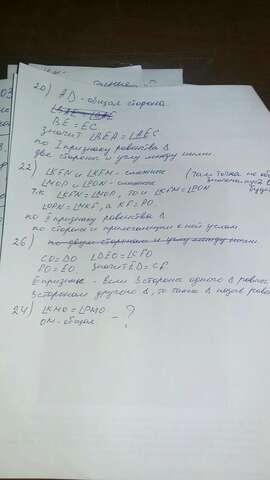 20) AD - общая сторона
BE = EC
значит ∠BEA = ∠AEC
по I признаку равенства Δ
две стороны и углу между ними
22) ∠KFN и ∠KFM - смежные (там точка не об
∠MOP и ∠PON - смежные
т.к ∠KFN = ∠MOP, то и ∠KFM = ∠PON
∠OPN = ∠MKF, а KF = PO.
по II признаку равенства Δ
по стороне и прилегающим к ней углам
26) по двум сторонам и углу между ними
CO = DO ∠DEO = ∠CFO
PO = EO, значит ED = CF
III признак - Если 3 стороны одного Δ равны
3 сторонам другого Δ, то такие Δ назыв равны
24) ∠KMO = ∠PMO
OM - общая - ?